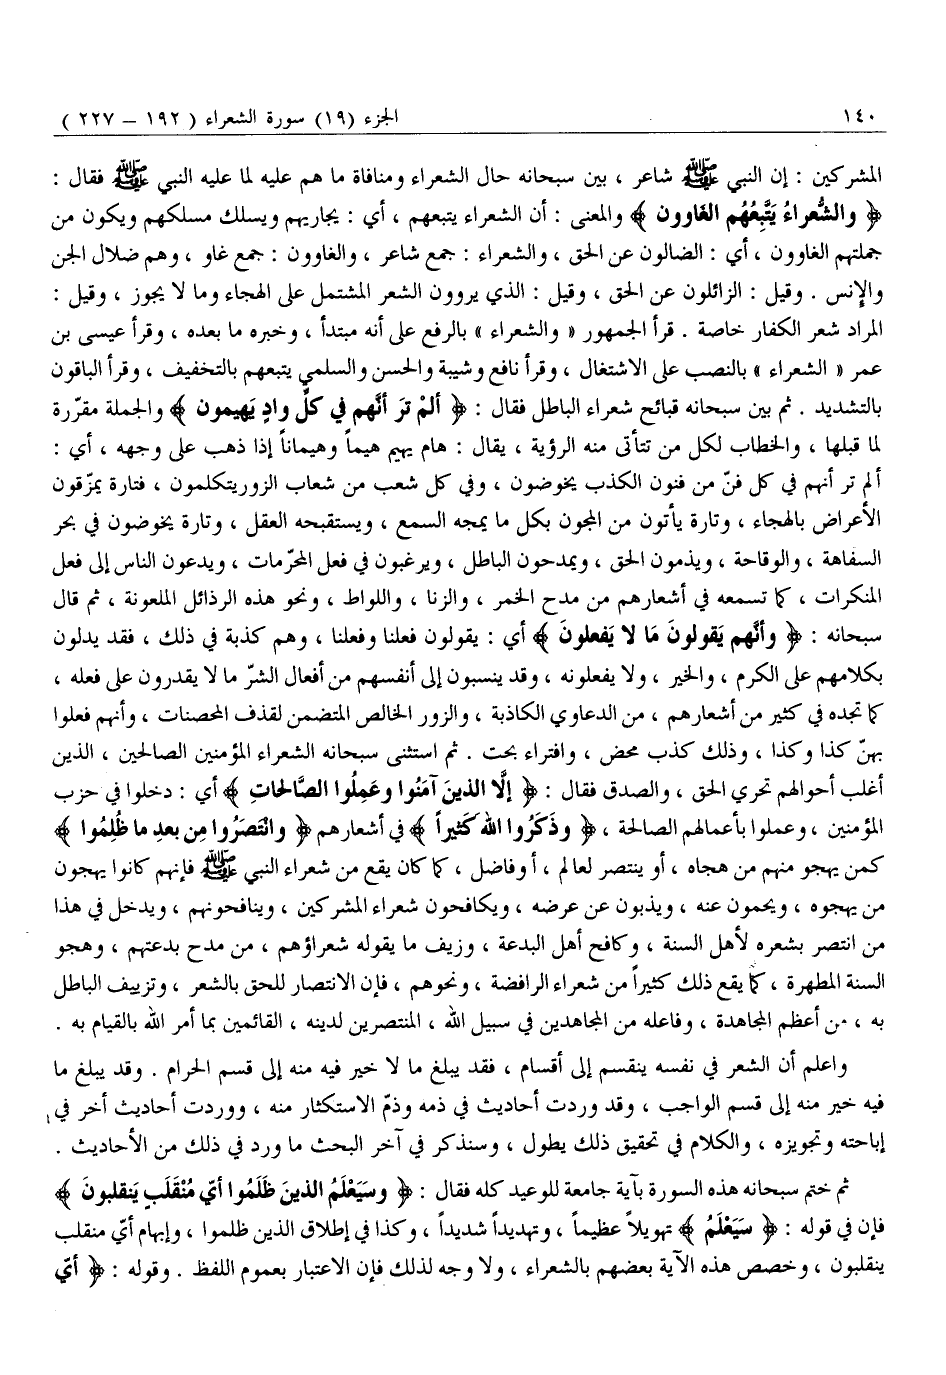 ١٤٠ الجزء (١٩) سورة الشعراء ( ١٩٢ – ٢٢٧ )
المشركين : إن النبي ﷺ شاعر ، بين سبحانه حال الشعراء ومنافاة ما هم عليه لما عليه النبي ﷺ فقال :
﴿ والشُّعراءُ يَتَّبِعُهُم الغَاوون ﴾ والمعنى : أن الشعراء يتبعهم ، أي : يجاريهم ويسلك مسلكهم ويكون من
جملتهم الغاوون ، أي : الضالون عن الحق ، والشعراء : جمع شاعر ، والغاوون : جمع غاو ، وهم ضلال الجن
والإنس . وقيل : الزائلون عن الحق ، وقيل : الذي يروون الشعر المشتمل على الهجاء وما لا يجوز ، وقيل :
المراد شعر الكفار خاصة . قرأ الجمهور « والشعراء » بالرفع على أنه مبتدأ ، وخبره ما بعده ، وقرأ عيسى بن
عمر « الشعراء » بالنصب على الاشتغال ، وقرأ نافع وشيبة والحسن والسلمي يتبعهم بالتخفيف ، وقرأ الباقون
بالتشديد . ثم بين سبحانه قبائح شعراء الباطل فقال : ﴿ ألمْ ترَ أنَّهم في كلِّ وادٍ يَهيمون ﴾ والجملة مقرّرة
لما قبلها ، والخطاب لكل من تتأتى منه الرؤية ، يقال : هام يهيم هيماً وهيماناً إذا ذهب على وجهه ، أي :
ألم تر أنهم في كل فنّ من فنون الكذب يخوضون ، وفي كل شعب من شعاب الزوريتكلمون ، فتارة يمزّقون
الأعراض بالهجاء ، وتارة يأتون من المجون بكل ما يمجه السمع ، ويستقبحه العقل ، وتارة يخوضون في بحر
السفاهة ، والوقاحة ، ويذمون الحق ، ويمدحون الباطل ، ويرغبون في فعل المحرّمات ، ويدعون الناس إلى فعل
المنكرات ، كما تسمعه في أشعارهم من مدح الخمر ، والزنا ، واللواط ، ونحو هذه الرذائل الملعونة ، ثم قال
سبحانه : ﴿ وأنَّهم يَقولونَ مَا لا يَفعلونَ ﴾ أي : يقولون فعلنا وفعلنا ، وهم كذبة في ذلك ، فقد يدلون
بكلامهم على الكرم ، والخير ، ولا يفعلونه ، وقد ينسبون إلى أنفسهم من أفعال الشرّ ما لا يقدرون على فعله ،
كما تجده في كثير من أشعارهم ، من الدعاوي الكاذبة ، والزور الخالص المتضمن لقذف المحصنات ، وأنهم فعلوا
بهنّ كذا وكذا ، وذلك كذب محض ، وافتراء بحت . ثم استثنى سبحانه الشعراء المؤمنين الصالحين ، الذين
أغلب أحوالهم تحري الحق ، والصدق فقال : ﴿ إلَّا الذينَ آمَنُوا وعَمِلُوا الصَّالحَاتِ ﴾ أي : دخلوا في حزب
المؤمنين ، وعملوا بأعمالهم الصالحة ، ﴿ وذَكَرُوا اللهَ كثيراً ﴾ في أشعارهم ﴿ وانْتَصَرُوا مِن بعدِ ما ظُلِمُوا ﴾
كمن يهجو منهم من هجاه ، أو ينتصر لعالم ، أو فاضل ، كما كان يقع من شعراء النبي ﷺ فإنهم كانوا يهجون
من يهجوه ، ويحمون عنه ، ويذبون عن عرضه ، ويكافحون شعراء المشركين ، وينافحونهم ، ويدخل في هذا
من انتصر بشعره لأهل السنة ، وكافح أهل البدعة ، وزيف ما يقوله شعراؤهم ، من مدح بدعتهم ، وهجو
السنة المطهرة ، كما يقع ذلك كثيراً من شعراء الرافضة ، ونحوهم ، فإن الانتصار للحق بالشعر ، وتزييف الباطل
به ، من أعظم المجاهدة ، وفاعله من المجاهدين في سبيل الله ، المنتصرين لدينه ، القائمين بما أمر الله بالقيام به .
واعلم أن الشعر في نفسه ينقسم إلى أقسام ، فقد يبلغ ما لا خير فيه منه إلى قسم الحرام . وقد يبلغ ما
فيه خير منه إلى قسم الواجب ، وقد وردت أحاديث في ذمه وذمّ الاستكثار منه ، ووردت أحاديث أخر في
إباحته وتجويزه ، والكلام في تحقيق ذلك يطول ، وسنذكر في آخر البحث ما ورد في ذلك من الأحاديث .
ثم ختم سبحانه هذه السورة بآية جامعة للوعيد كله فقال : ﴿ وسيَعْلَمُ الذينَ ظَلَمُوا أيَّ مُنْقَلَبٍ يَنقلبونَ ﴾
فإن في قوله : ﴿ سَيَعْلَمُ ﴾ تهويلاً عظيماً ، وتهديداً شديداً ، وكذا في إطلاق الذين ظلموا ، وإبهام أيّ منقلب
ينقلبون ، وخصص هذه الآية بعضهم بالشعراء ، ولا وجه لذلك فإن الاعتبار بعموم اللفظ . وقوله : ﴿ أيّ